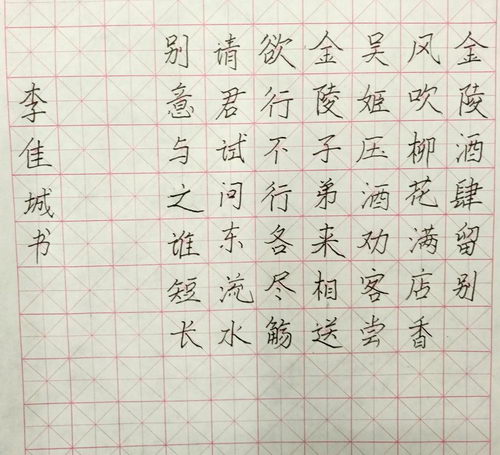 金陵酒肆留别
风吹柳花满店香
吴姬压酒劝客尝
金陵子弟来相送
欲行不行各尽觞
请君试问东流水
别意与之谁短长
李佳城书